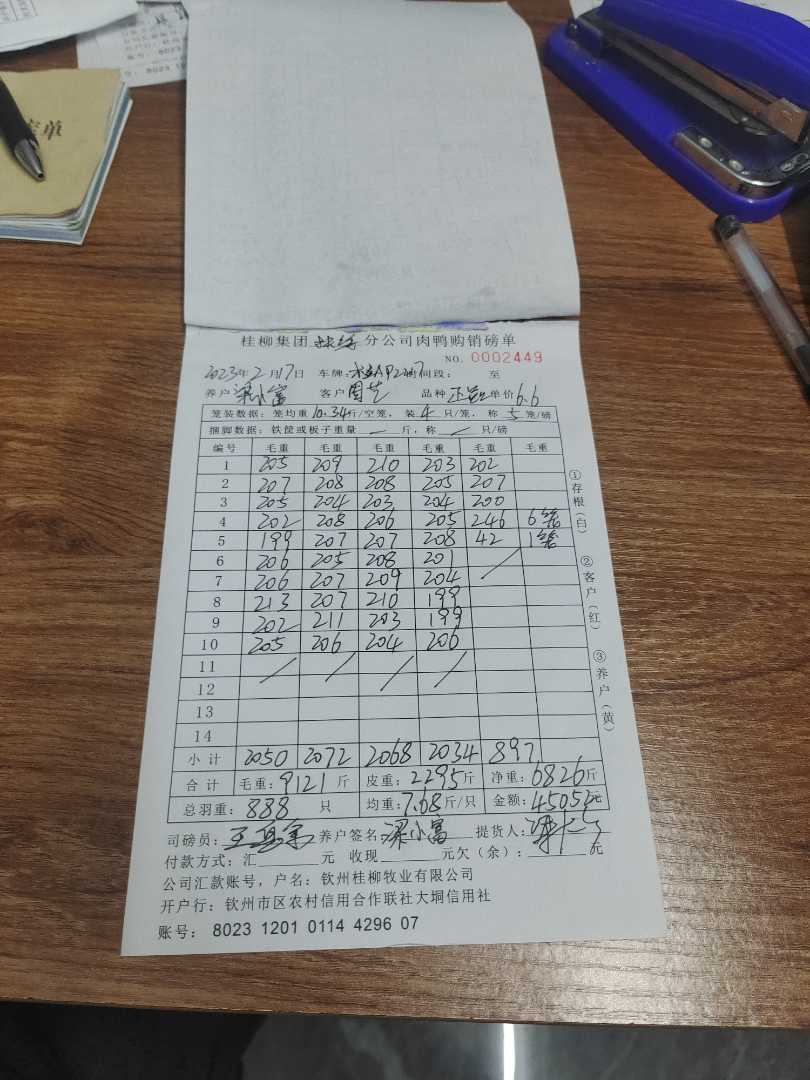 单
桂柳集团 分公司肉鸭购销磅单
NO. 0002449
2023年2月17日 车牌: 时间段: 至
养户 梁小富 客户 周艺 品种 单价 6.6
笼装数据: 笼均重 10.34斤/空笼, 装 4 只/笼, 称 5 笼/磅
捆脚数据: 铁筐或板子重量 — 斤, 称 / 只/磅
编号 毛重 毛重 毛重 毛重 毛重 毛重
1 205 209 210 203 202
2 207 208 208 205 207
3 205 204 203 204 200
4 202 208 206 205 246 6笼
5 199 207 207 208 42 1笼
6 206 205 208 201
7 206 207 209 204
8 213 207 210 199
9 202 211 203 199
10 205 206 204 206
11
12
13
14
小计 2050 2072 2068 2034 897
合计 毛重: 9121 斤 皮重: 2295斤 净重: 6826斤
总羽重: 888 只 均重: 7.68斤/只 金额: 45052元
司磅员: 养户签名: 梁小富 提货人:
付款方式: 汇 元 收现 元欠(余): 元
公司汇款账号, 户名: 钦州桂柳牧业有限公司
开户行: 钦州市区农村信用合作联社大垌信用社
账号: 8023 1201 0114 4296 07
①存根(白)
②客户(红)
③养户(黄)